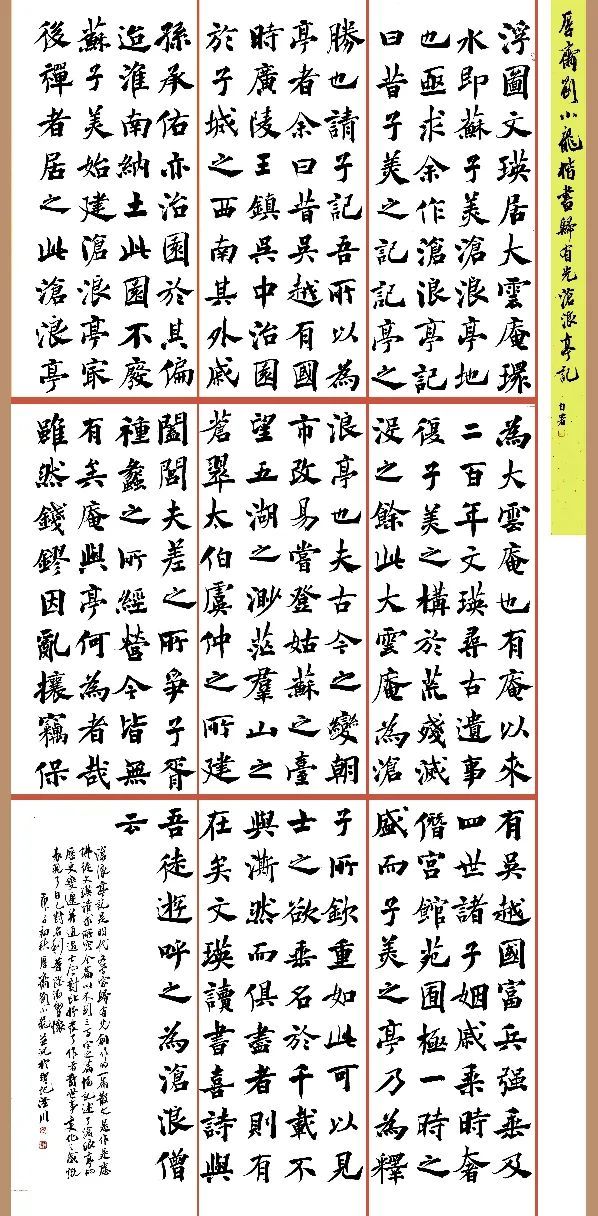 齋劉小龍楷書歸有光滄浪亭記 自署
浮圖文瑛居大雲庵環
水即蘇子美滄浪亭地
也亟求余作滄浪亭記
曰昔子美之記記亭之
勝也請子記吾所以為
亭者余曰昔吳越有國
時廣陵王鎮吳中治園
於子城之西南其外戚
孫承佑亦治園於其偏
迨淮南納土此園不廢
蘇子美始建滄浪亭最
後禪者居之此滄浪亭
為大雲庵也有庵以來
二百年文瑛尋古遺事
復子美之構於荒殘滅
沒之餘此大雲庵為滄
浪亭也夫古今之變朝
市改易嘗登姑蘇之臺
望五湖之渺茫羣山之
蒼翠太伯虞仲之所建
闔閭夫差之所爭子胥
種蠡之所經營今皆無
有矣庵與亭何為者哉
雖然錢鏐因亂攘竊保
有吳越國富兵强垂及
四世諸子姻戚乘時奢
僭宮館苑囿極一時之
盛而子美之亭乃為釋
子所欽重如此可以見
士之欲垂名於千載不
與澌然而俱盡者則有
在矣文瑛讀書喜詩與
吾徒遊呼之為滄浪僧
云
滄浪亭記是明代文學家歸有光創作的一篇散文是作者應
佛徒文瑛请求所寫全篇以不到三百字之篇幅記述了滄浪亭的
歷史變遷並通過對比抒發了作者對世事變化之感慨
表現了自己對名利
庚子初秋齋劉小龍並記於漢川